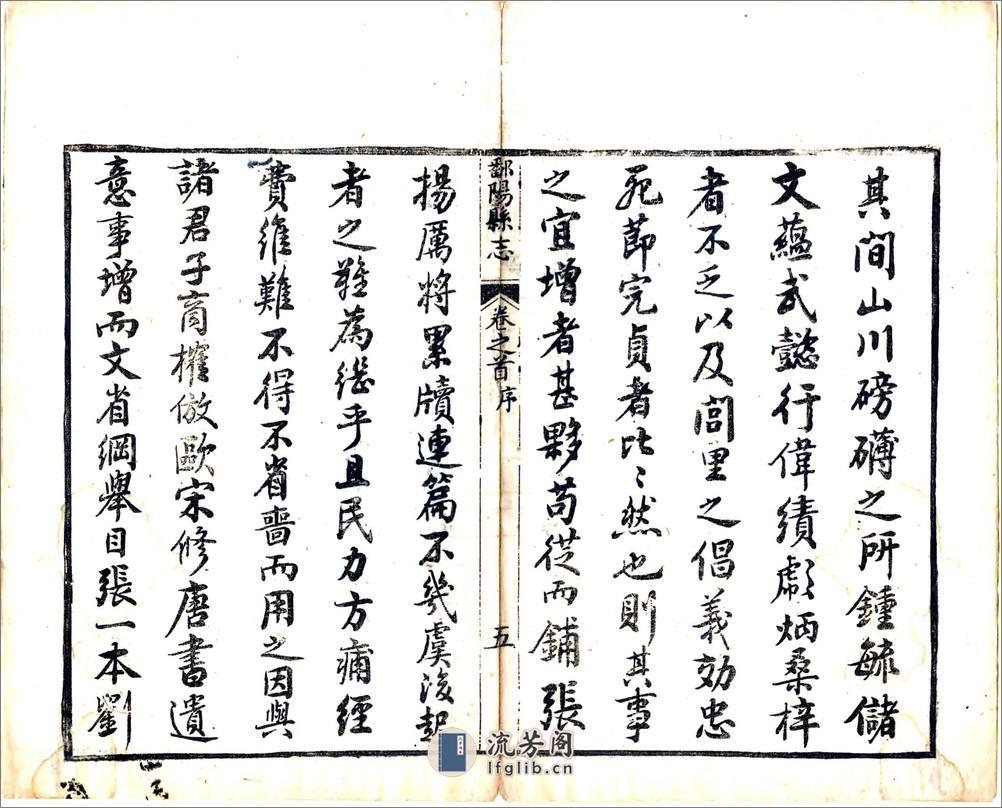 其間山川磅礴之所鍾毓儲
文蘊武懿行偉績彪炳桑梓
者不乏以及閭里之倡義効忠
死節完貞者比〻然也則其事
之宜增者甚夥苟從而鋪張
鄱陽縣志 卷之首 序 五
揚厲將累牘連篇不幾虞後起
者之難為繼乎且民力方痡經
費維難不得不省嗇而用之因與
諸君子商榷倣歐宋修唐書遺
意事增而文省綱舉目張一本劉
流芳阁
lfglib.cn